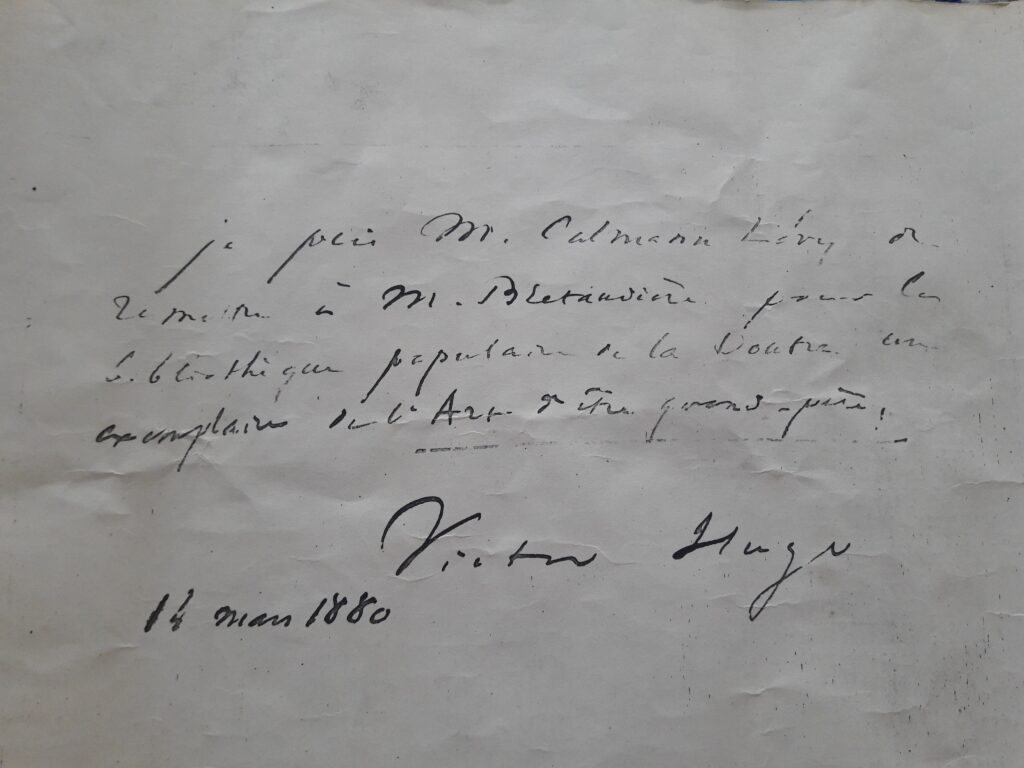 je prie M. Calmann Lévy de
remettre à M. Bretaudière pour la
bibliothèque populaire de la Doutre un
exemplaire de l'Art d'être grand-père.
Victor Hugo
14 mars 1880